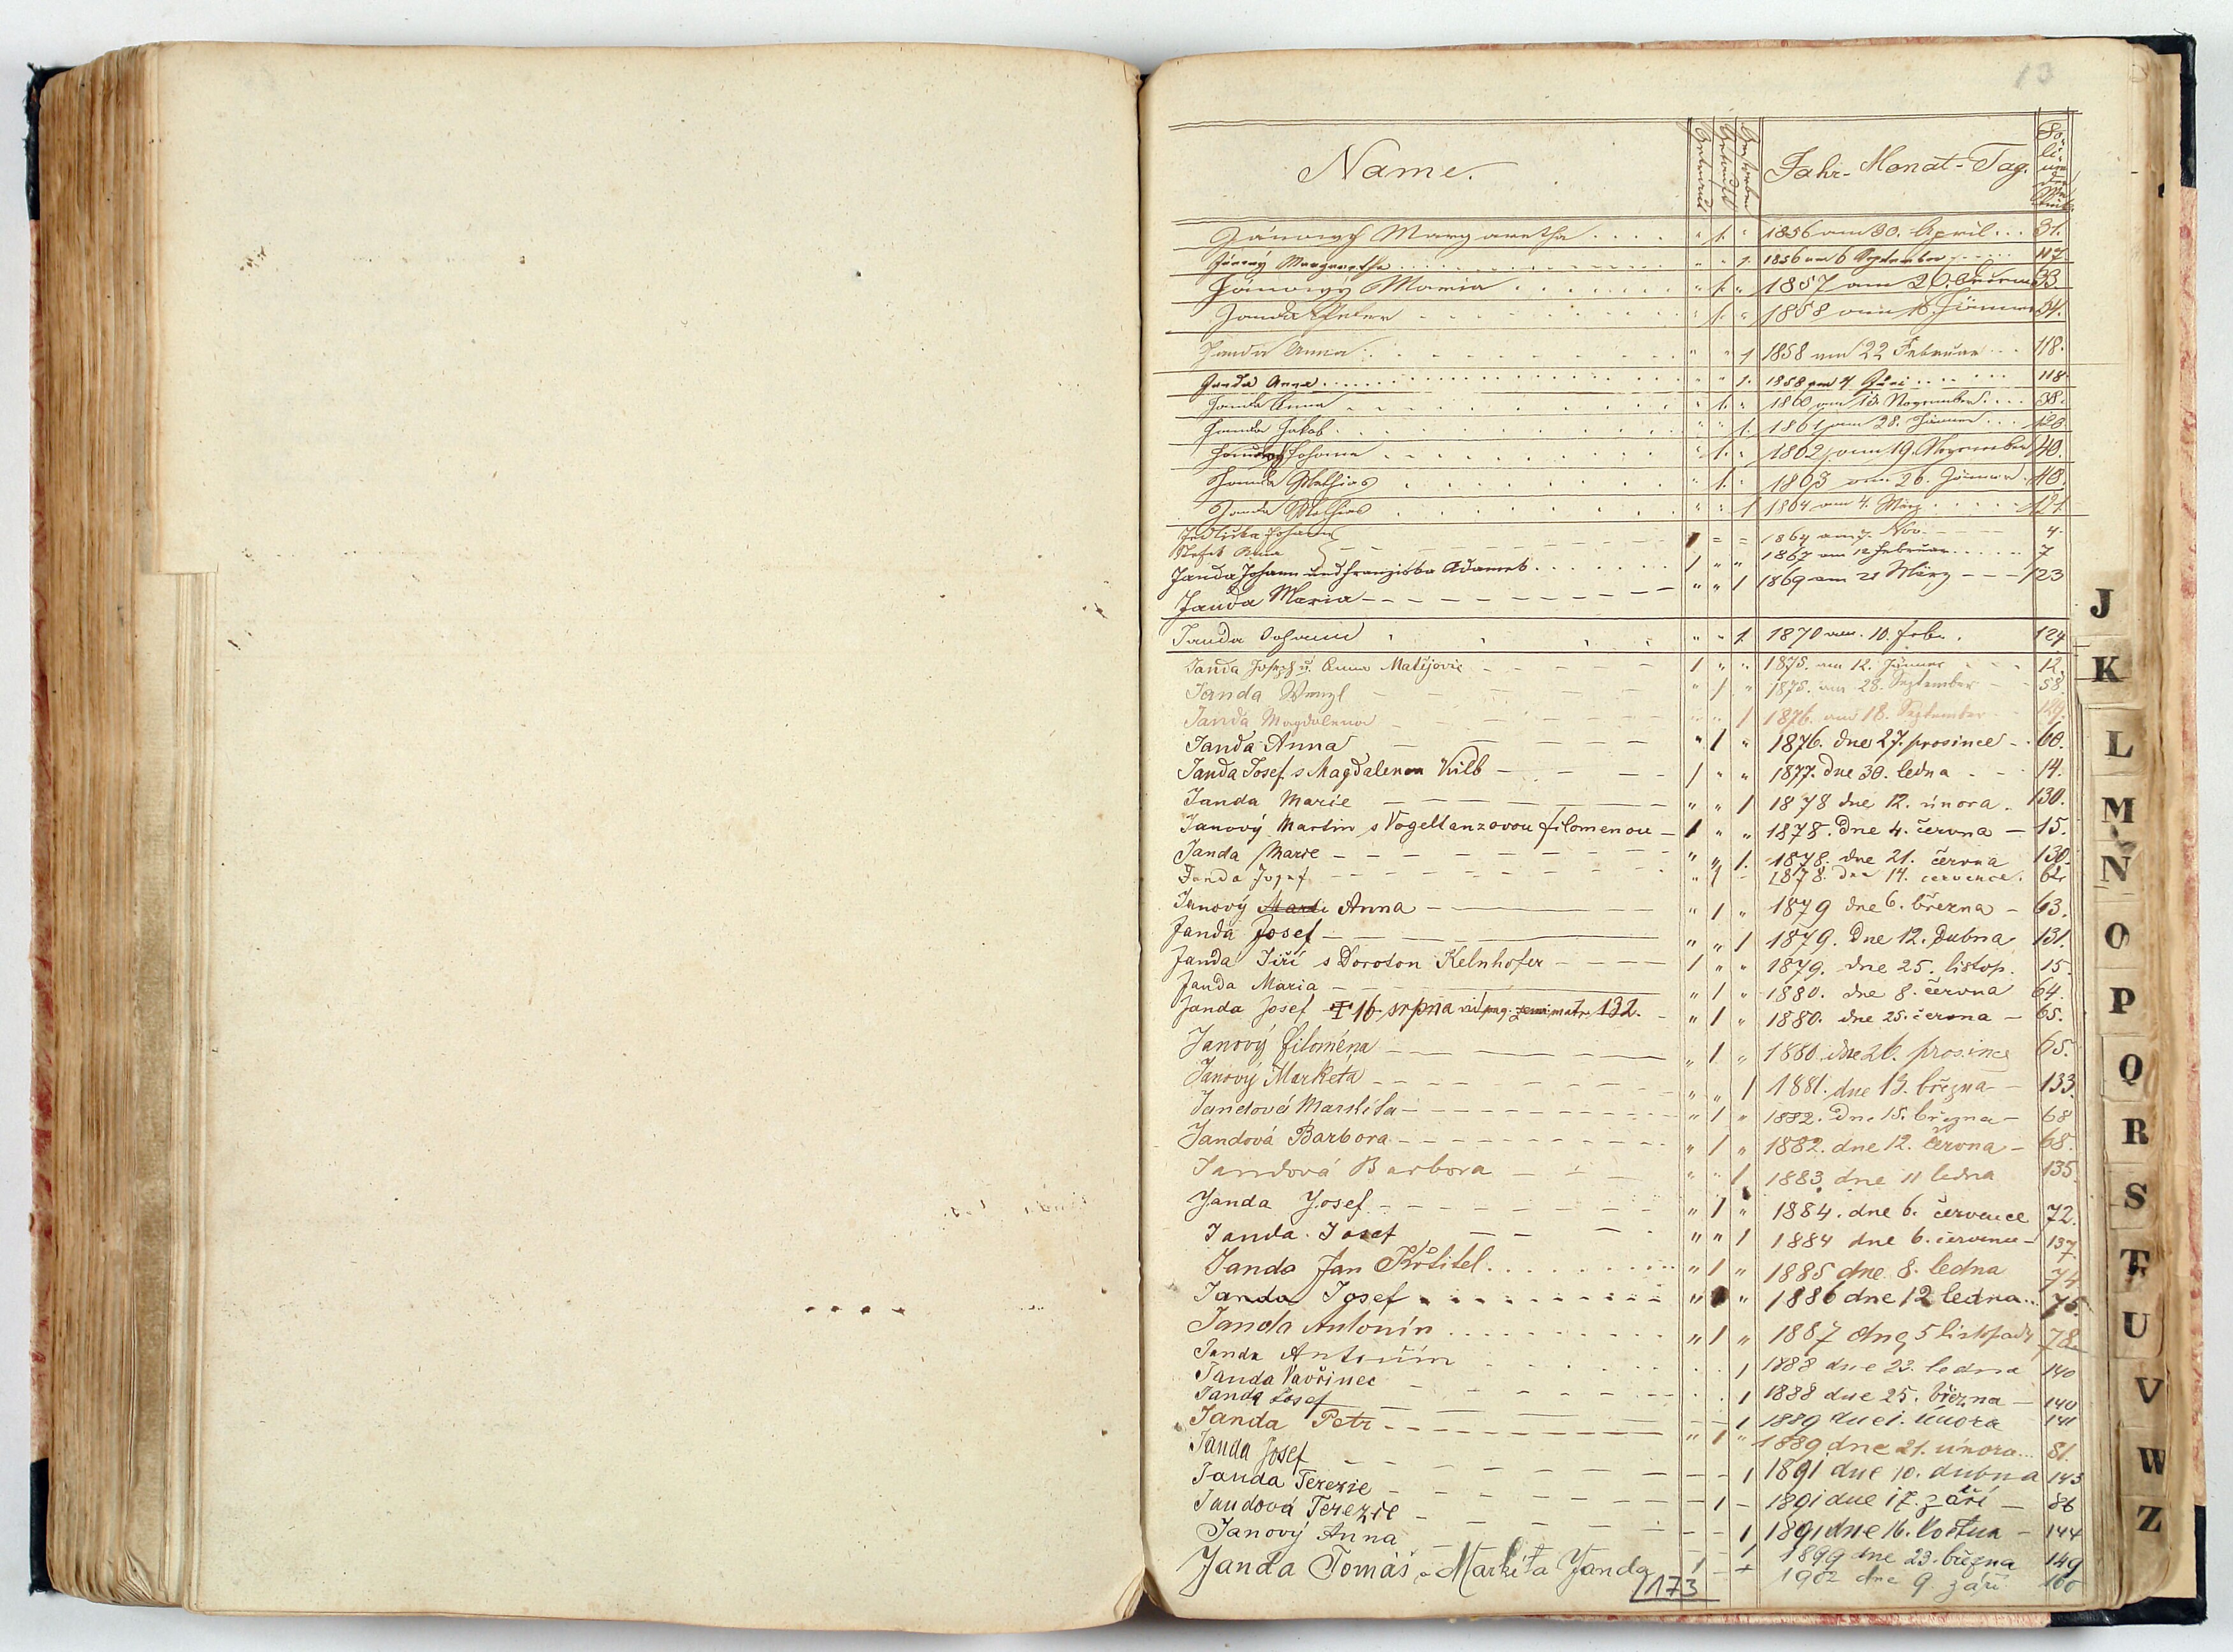 13
Name. Getraut Getauft Gestorben Jahr- Monat- Tag.
Jánowÿ Margaretha . . . . " 1. " 1856 am 30. April . . . 31.
Jánowÿ Margaretha " " 1. 1856 am 6 September 117
Jánowÿ Maria . . . . . . " 1. " 1857 am 20. 33.
Janda Peter " 1. " 1858 am 16. Jänner 34.
Janda Anna " " 1 1858 am 22 Februar 118.
Janda Anna " " 1. 1858 am 4 Juni 118.
Janda Anna " 1. " 1860 am 13. November 38.
Janda Jakob " " 1. 1861 am 28. Jänner 120
Johann " 1. " 1862 am 19. November 40.
Janda Mathias " 1. " 1863 am 26. Jänner 40.
Janda Mathias " " 1 1864 am 4. März 121
Jedlička Johann 1 = = 1864 am 7. Nov. 4.
Anna
Janda Johann und Franziska Adamek 1 " " 1867 am 12 Februar 7
Janda Maria " " 1 1869 am 21 März 123
Janda Johann " " 1. 1870 am. 10. Feb. 124
Janda Joseph u. Anna Matějovic 1 " " 1875. am 12. Jänner 12.
Janda Wenzl " 1 " 1875. am 28. September 58.
Janda Magdalena " " 1 1876. am 18. September 129.
Janda Anna " 1 " 1876. dne 27. prosince 60.
Janda Josef s Magdalenou Kilb 1 " " 1877. dne 30. ledna 14.
Janda Marie " " 1 1878 dne 12. února. 130.
Janový Martin s Vogeltanzovou Filomenou 1 " " 1878. dne 4. června 15.
Janda Marie " " 1. 1878. dne 21. června 130.
Janda Josef " 1 - 1878. dne 14. července. 62.
Janový Marie Anna " 1 " 1879 dne 6. března 63.
Janda Josef " " 1 1879. dne 12. dubna 131.
Janda Jiří s Doroton Kelnhofer 1 " " 1879. dne 25. listop. 15.
Janda Maria " 1 " 1880. dne 8. června 64.
Janda Josef † 16. srpna vid pag. zemř. matr. 132. " 1 " 1880. dne 25. června 65.
Janový Filoména " 1 " 1880. dne 26. prosince 65.
Janový Marketa " " 1 1881. dne 19. března 133.
Jandová Markéta " 1 " 1882. dne 15. března 68
Jandová Barbora " 1 " 1882. dne 12. června 68.
Jandová Barbora " " 1 1883. dne 11 ledna 135.
Janda Josef " 1 " 1884. dne 6. července 72.
Janda Josef " " 1 1884 dne 6. července 137.
Janda Jan Křtitel " 1 " 1885 dne 8. ledna 74
Janda Josef " " 1886 dne 12 ledna 75.
Janda Antonín " 1 " 1887 dne 5 listopadu 78.
Janda Antonín . . 1 1888 dne 23. ledna 140
Janda Vavřinec . . 1 1888 dne 25. března 140
Janda Josef - - 1 1889 dne 1. února 141
Janda Petr " 1 " 1889 dne 21. února... 81.
Janda Josef - - 1 1891 dne 10. dubna 143
Janda Terezie - 1 - 1891 dne 17. září 86
Jandová Terezie - - 1 1891 dne 16. 144
Janový Anna - - 1 1899 dne 23. března 149
Janda Tomáš a Markéta Janda 1 - + 1902 dne 9 září 160
173
J
K
L
M
N
O
P
Q
R
S
T
U
V
W
Z